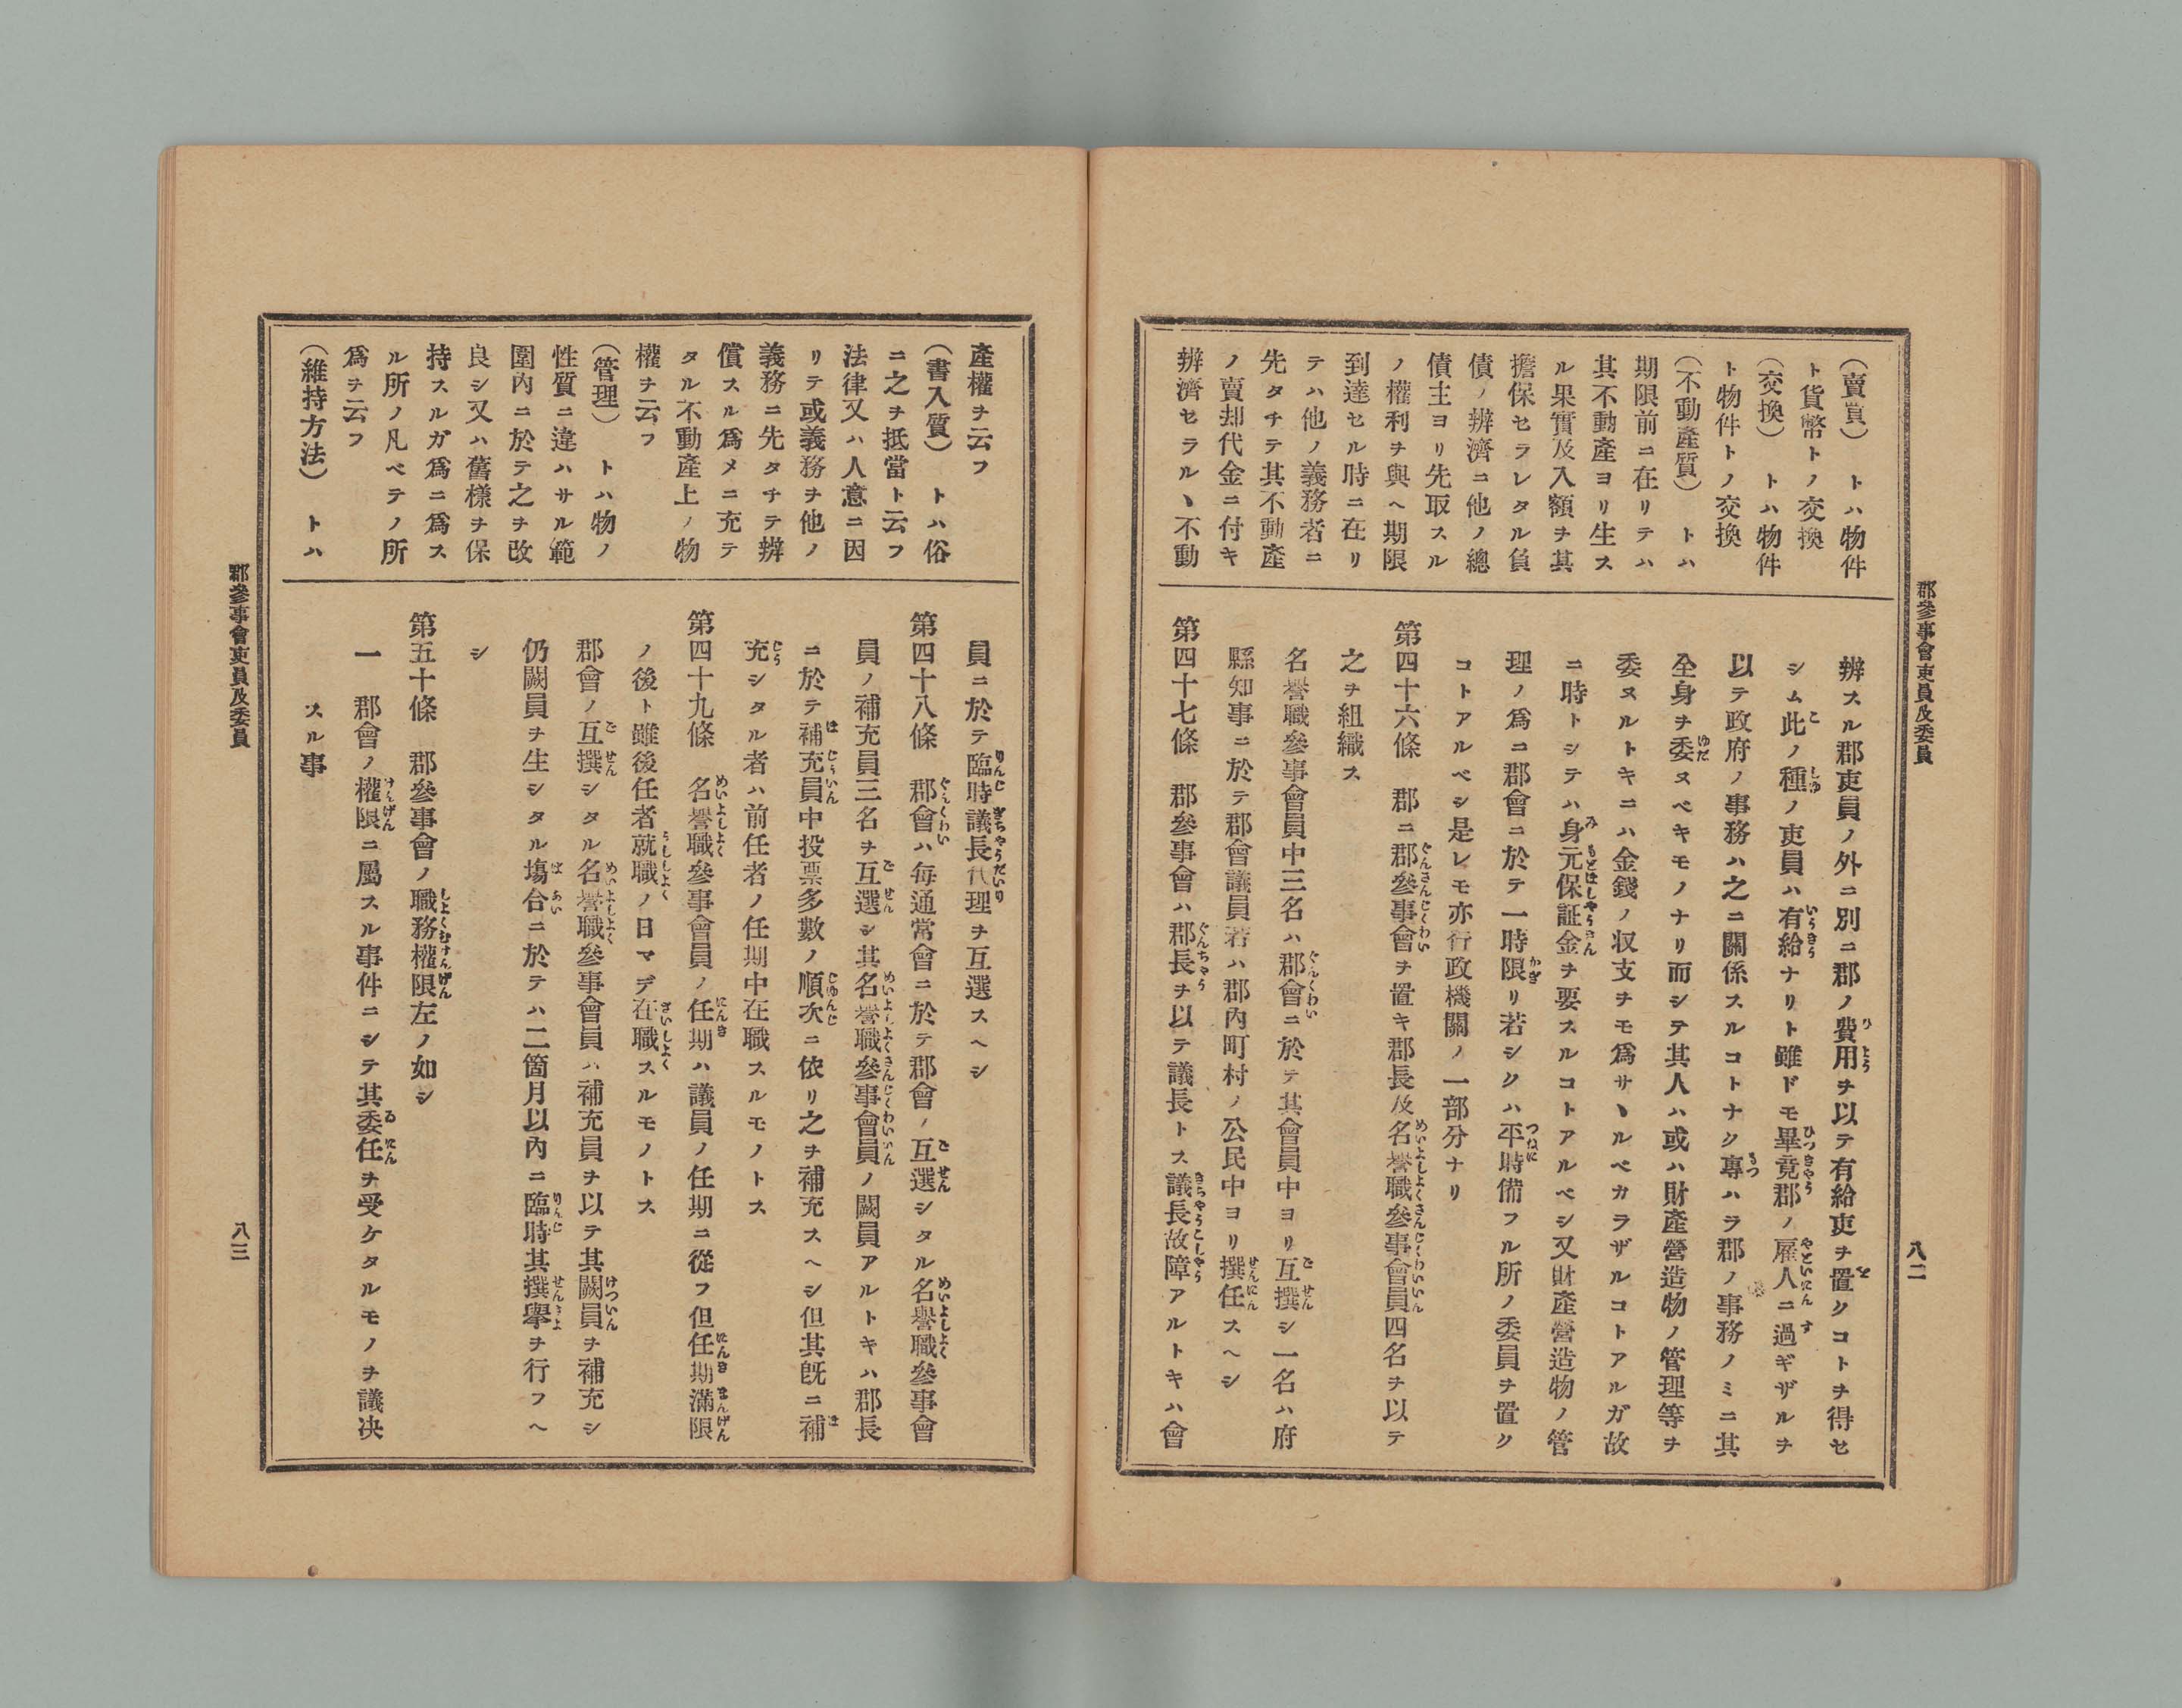 郡參事會吏員及委員
八二
（賣買）　トハ物件
ト貨幣トノ交換
（交換）　トハ物件
ト物件トノ交換
（不動產質）　トハ
期限前ニ在リテハ
其不動產ヨリ生ス
ル果實及入額ヲ其
擔保セラレタル負
債ノ辨濟ニ他ノ總
債主ヨリ先取スル
ノ權利ヲ與ヘ期限
到達セル時ニ在リ
テハ他ノ義務者ニ
先タチテ其不動產
ノ賣却代金ニ付キ
辨濟セラルヽ不動
辨スル郡吏員ノ外ニ別ニ郡ノ費用ヲ以テ有給吏ヲ置クコトヲ得セ
シム此ノ種ノ吏員ハ有給ナリト雖ドモ畢竟郡ノ雇人ニ過ギザルヲ
以テ政府ノ事務ハ之ニ關係スルコトナク專ハラ郡ノ事務ノミニ其
全身ヲ委ヌベキモノナリ而シテ其人ハ或ハ財產營造物ノ管理等ヲ
委ヌルトキニハ金錢ノ収支ヲモ爲サヽルベカラザルコトアルガ故
ニ時トシテハ身元保証金ヲ要スルコトアルベシ又財產營造物ノ管
理ノ爲ニ郡會ニ於テ一時限リ若シクハ平時備フル所ノ委員ヲ置ク
コトアルベシ是レモ亦行政機關ノ一部分ナリ
第四十六條　郡ニ郡參事會ヲ置キ郡長及名譽職參事會員四名ヲ以テ
之ヲ組織ス
名譽職參事會員中三名ハ郡會ニ於テ其會員中ヨリ互撰シ一名ハ府
縣知事ニ於テ郡會議員若ハ郡內町村ノ公民中ヨリ撰任スヘシ
第四十七條　郡參事會ハ郡長ヲ以テ議長トス議長故障アルトキハ會
產權ヲ云フ
（書入質）　トハ俗
ニ之ヲ抵當ト云フ
法律又ハ人意ニ因
リテ或義務ヲ他ノ
義務ニ先タチテ辨
償スル爲メニ充テ
タル不動產上ノ物
權ヲ云フ
（管理）　トハ物ノ
性質ニ違ハサル範
圍內ニ於テ之ヲ改
良シ又ハ舊樣ヲ保
持スルガ爲ニ爲ス
ル所ノ凡ベテノ所
爲ヲ云フ
（維持方法）　トハ
員ニ於テ臨時議長代理ヲ互選スヘシ
第四十八條　郡會ハ每通常會ニ於テ郡會ノ互選シタル名譽職參事會
員ノ補充員三名ヲ互選シ其名譽職參事會員ノ闕員アルトキハ郡長
ニ於テ補充員中投票多數ノ順次ニ依リ之ヲ補充スヘシ但其旣ニ補
充シタル者ハ前任者ノ任期中在職スルモノトス
第四十九條　名譽職參事會員ノ任期ハ議員ノ任期ニ從フ但任期滿限
ノ後ト雖後任者就職ノ日マデ在職スルモノトス
郡會ノ互撰シタル名譽職參事會員ハ補充員ヲ以テ其闕員ヲ補充シ
仍闕員ヲ生シタル塲合ニ於テハ二箇月以內ニ臨時其撰擧ヲ行フヘ
シ
第五十條　郡參事會ノ職務權限左ノ如シ
一　郡會ノ權限ニ屬スル事件ニシテ其委任ヲ受ケタルモノヲ議决
スル事
郡參事會吏員及委員
八三